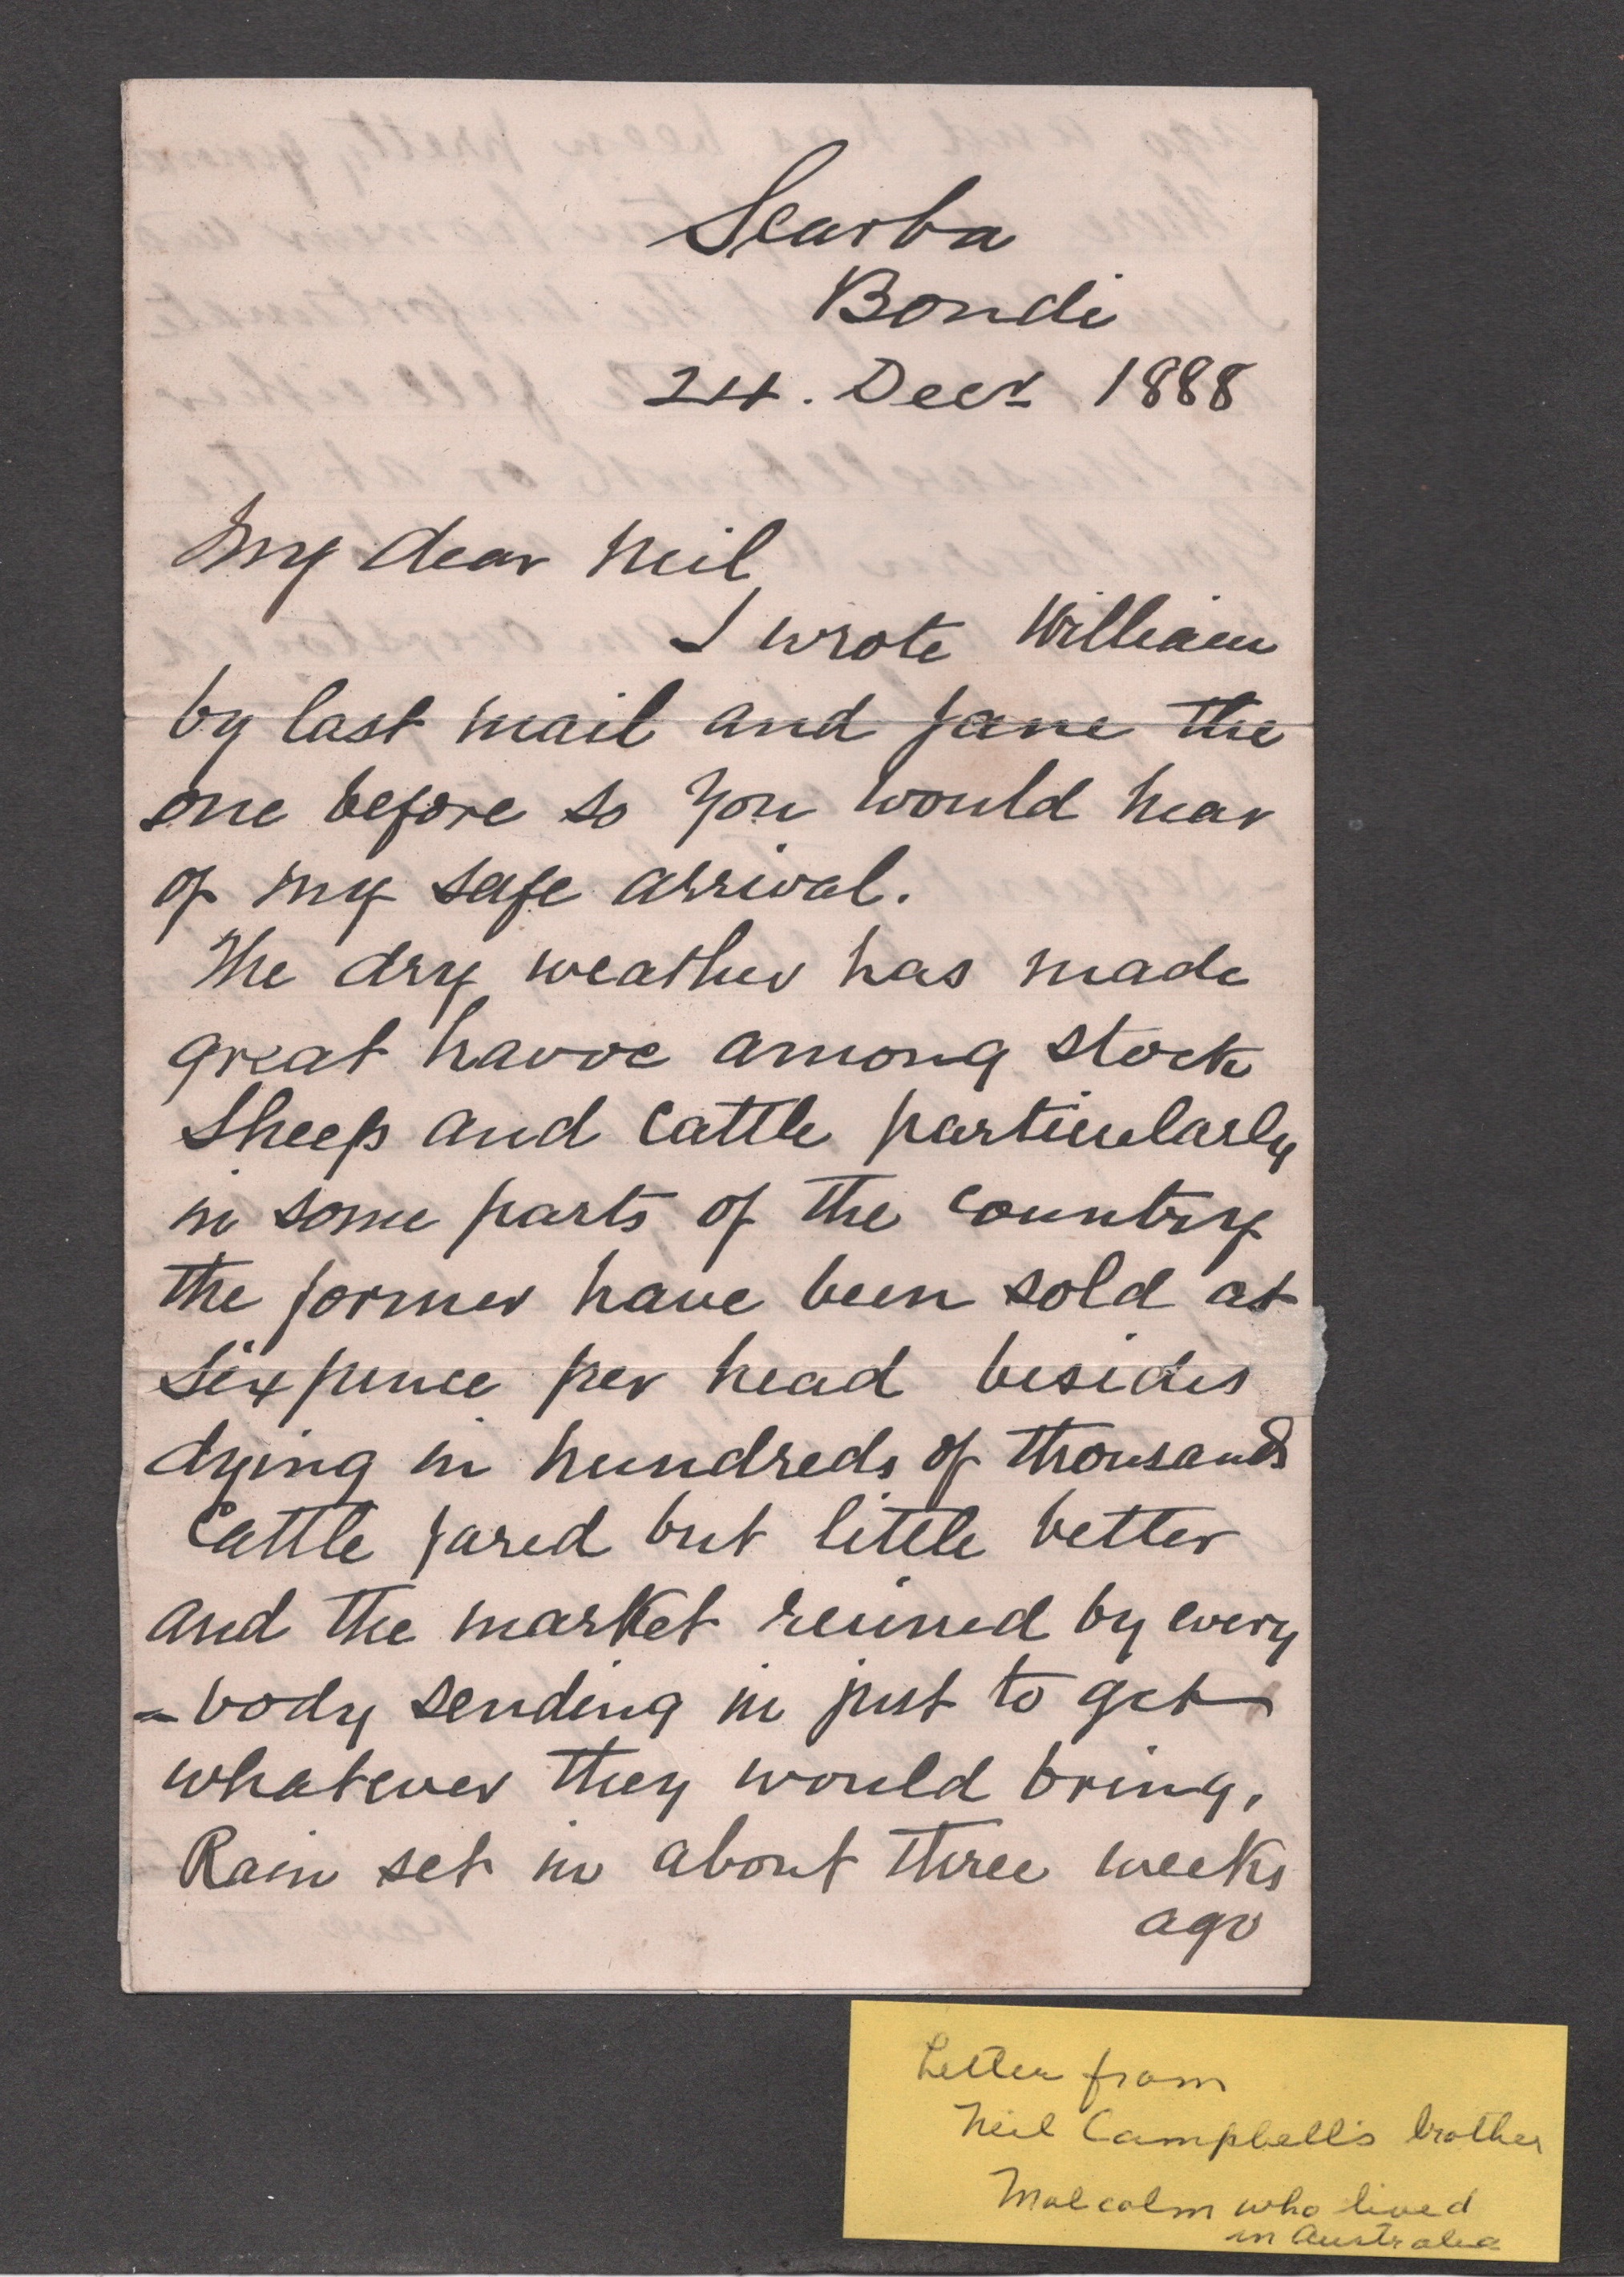 Scarba
Bondi
24. Decr 1888
My dear Neil
I wrote William
by last mail and Jane the
one before so you would hear
of my safe arrival.
The dry weather has made
great havoc among stock
Sheep and Cattle particularly
in some parts of the country
the former have been sold at
Sixpence per head besides
dying in hundreds of thousands
Cattle fared but little better
and the market ruined by every
=body sending in just to get
whatever they would bring.
Rain set in about three weeks
ago
Letter from
Neil Campbell's brother
Malcolm who lived
in Australia